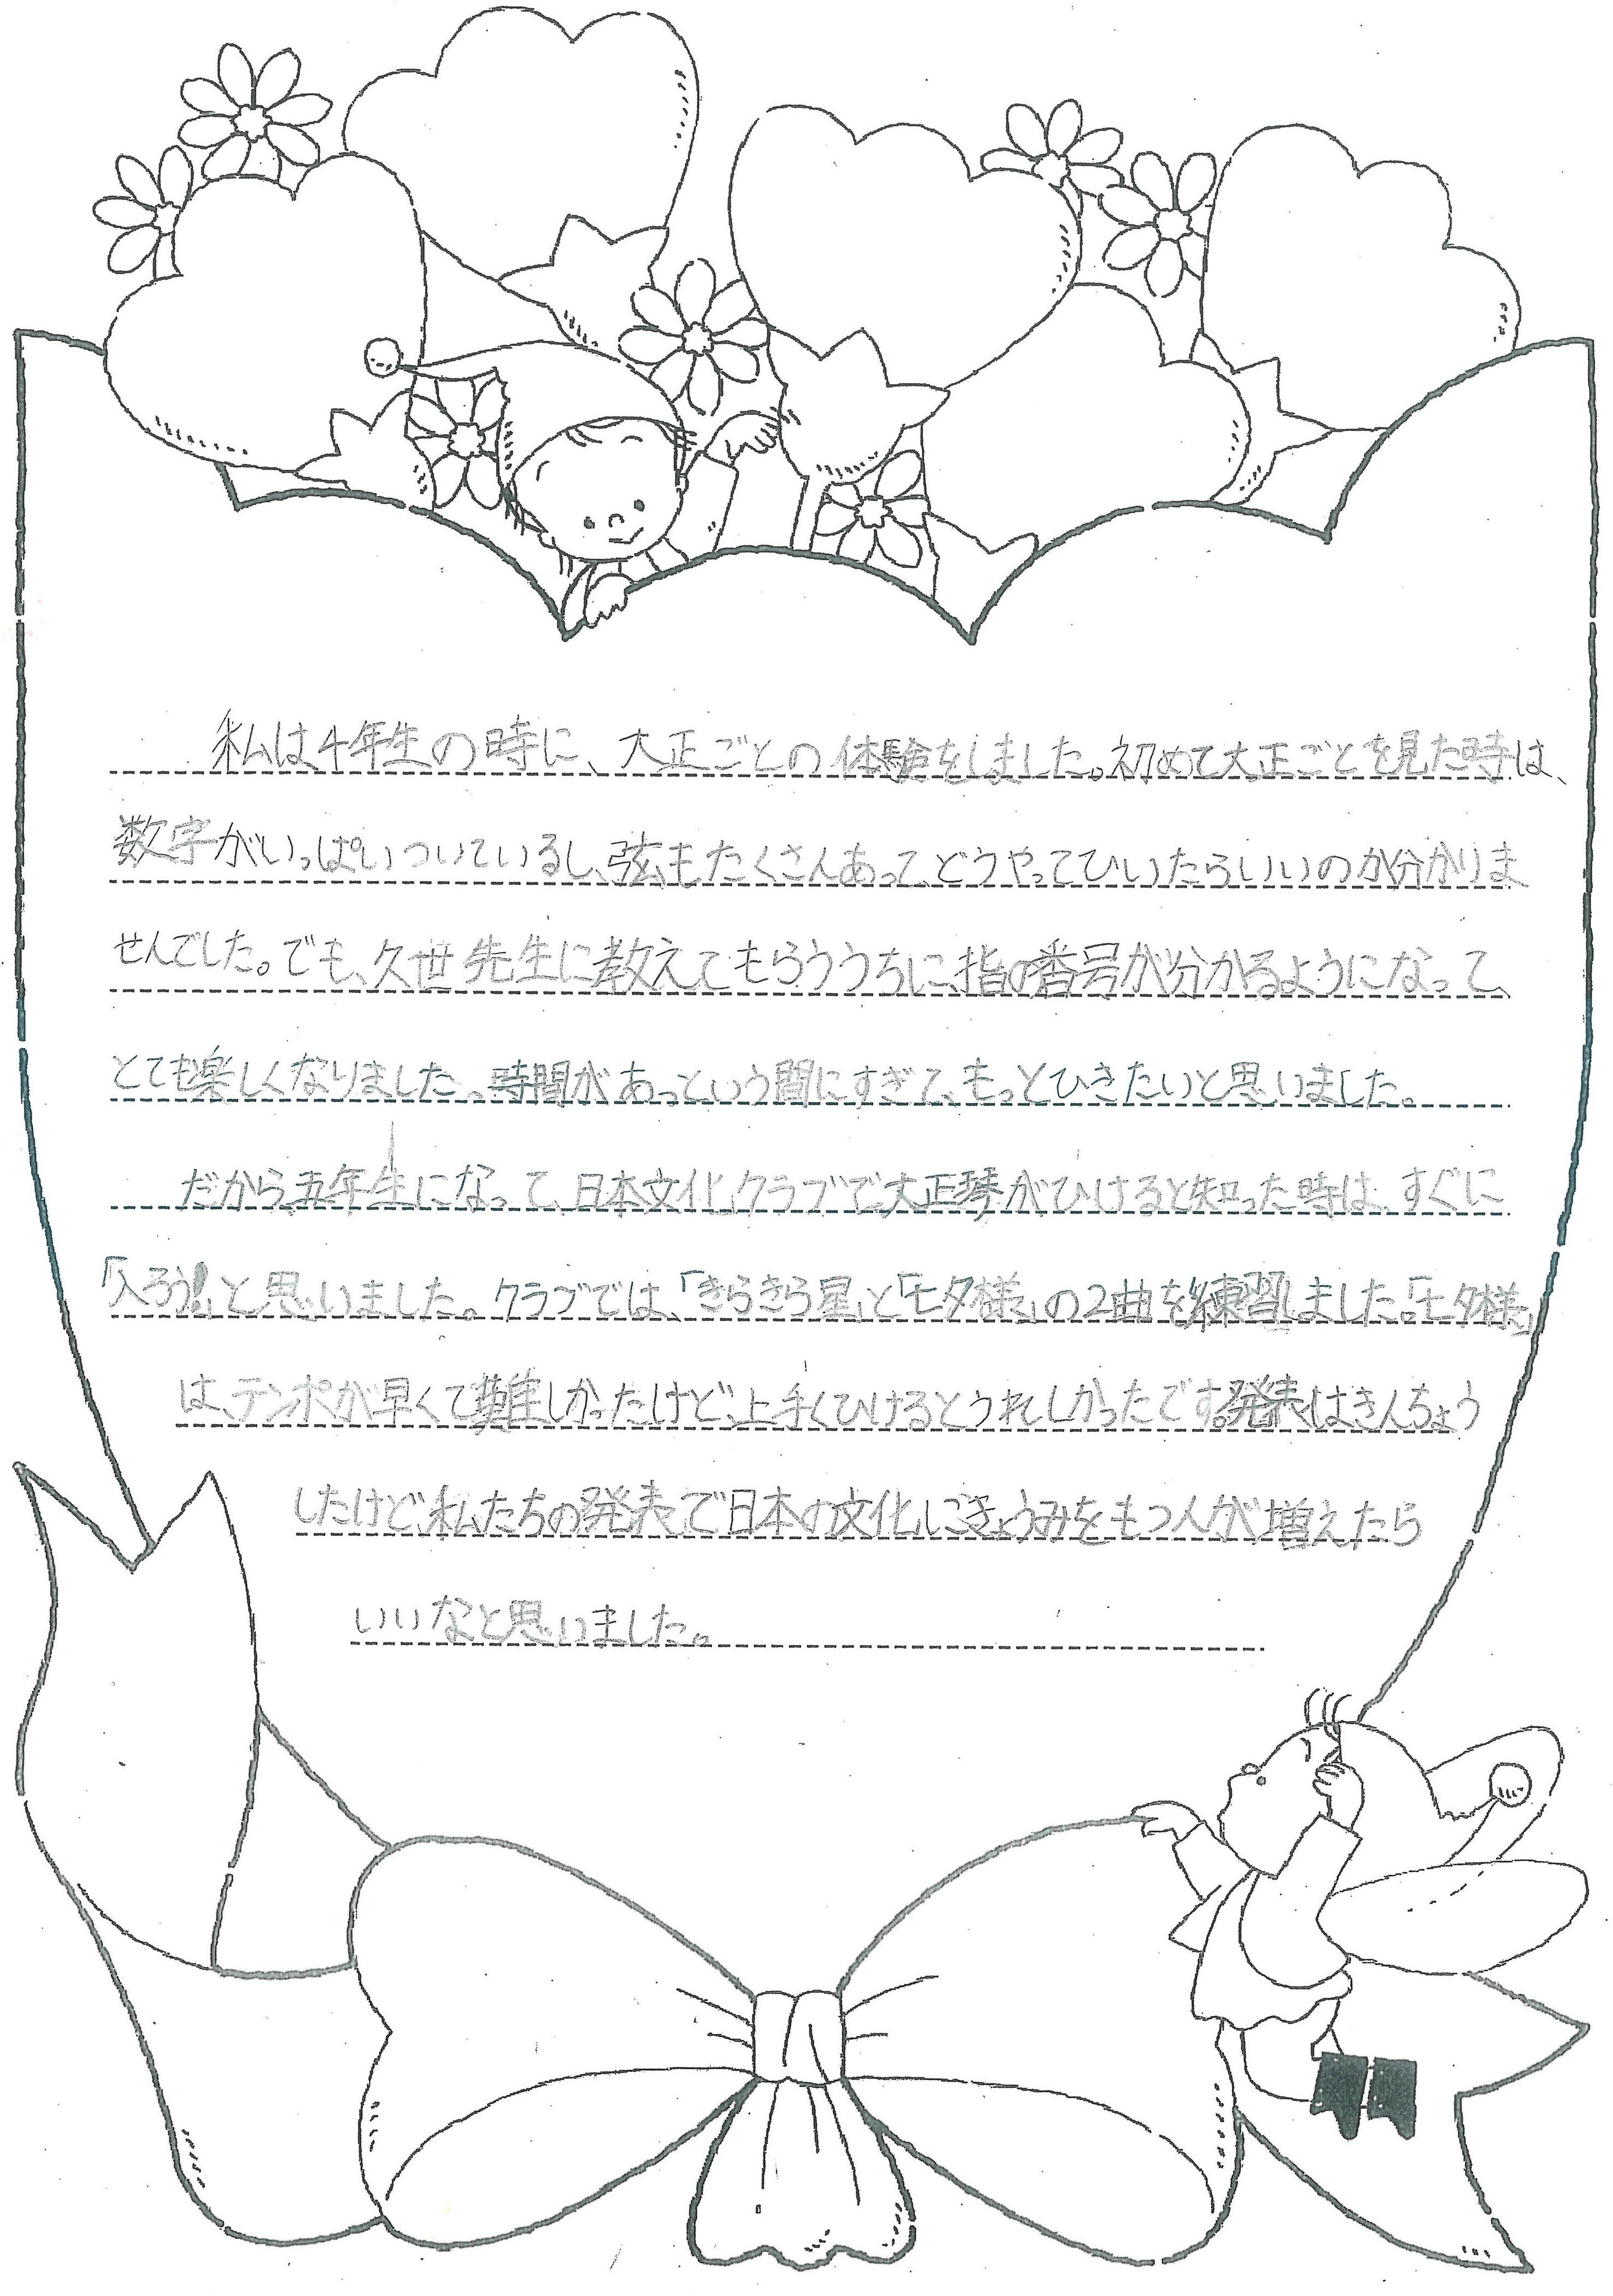 私は4年生の時に、大正ごとの体験をしました。初めて大正ごとを見た時は、
数字がいっぱいついているし、弦もたくさんあって、どうやってひいたらいいのか分かりま
せんでした。でも、久世先生に教えてもらううちに、指の番号が分かるようになって、
とても楽しくなりました。時間があっという間にすぎて、もっとひきたいと思いました。
だから、五年生になって、日本文化クラブで大正琴がひけると知った時は、すぐに
「入ろう!」と思いました。クラブでは、「きらきら星」と「モタ様」の2曲を練習しました。「モタ様」
は、テンポが早くて難しかったけど、上手くひけるとうれしかったです。発表はきんちょう
したけど、私たちの発表で日本の文化にきょうみをもつ人が増えたら
いいなと思いました。